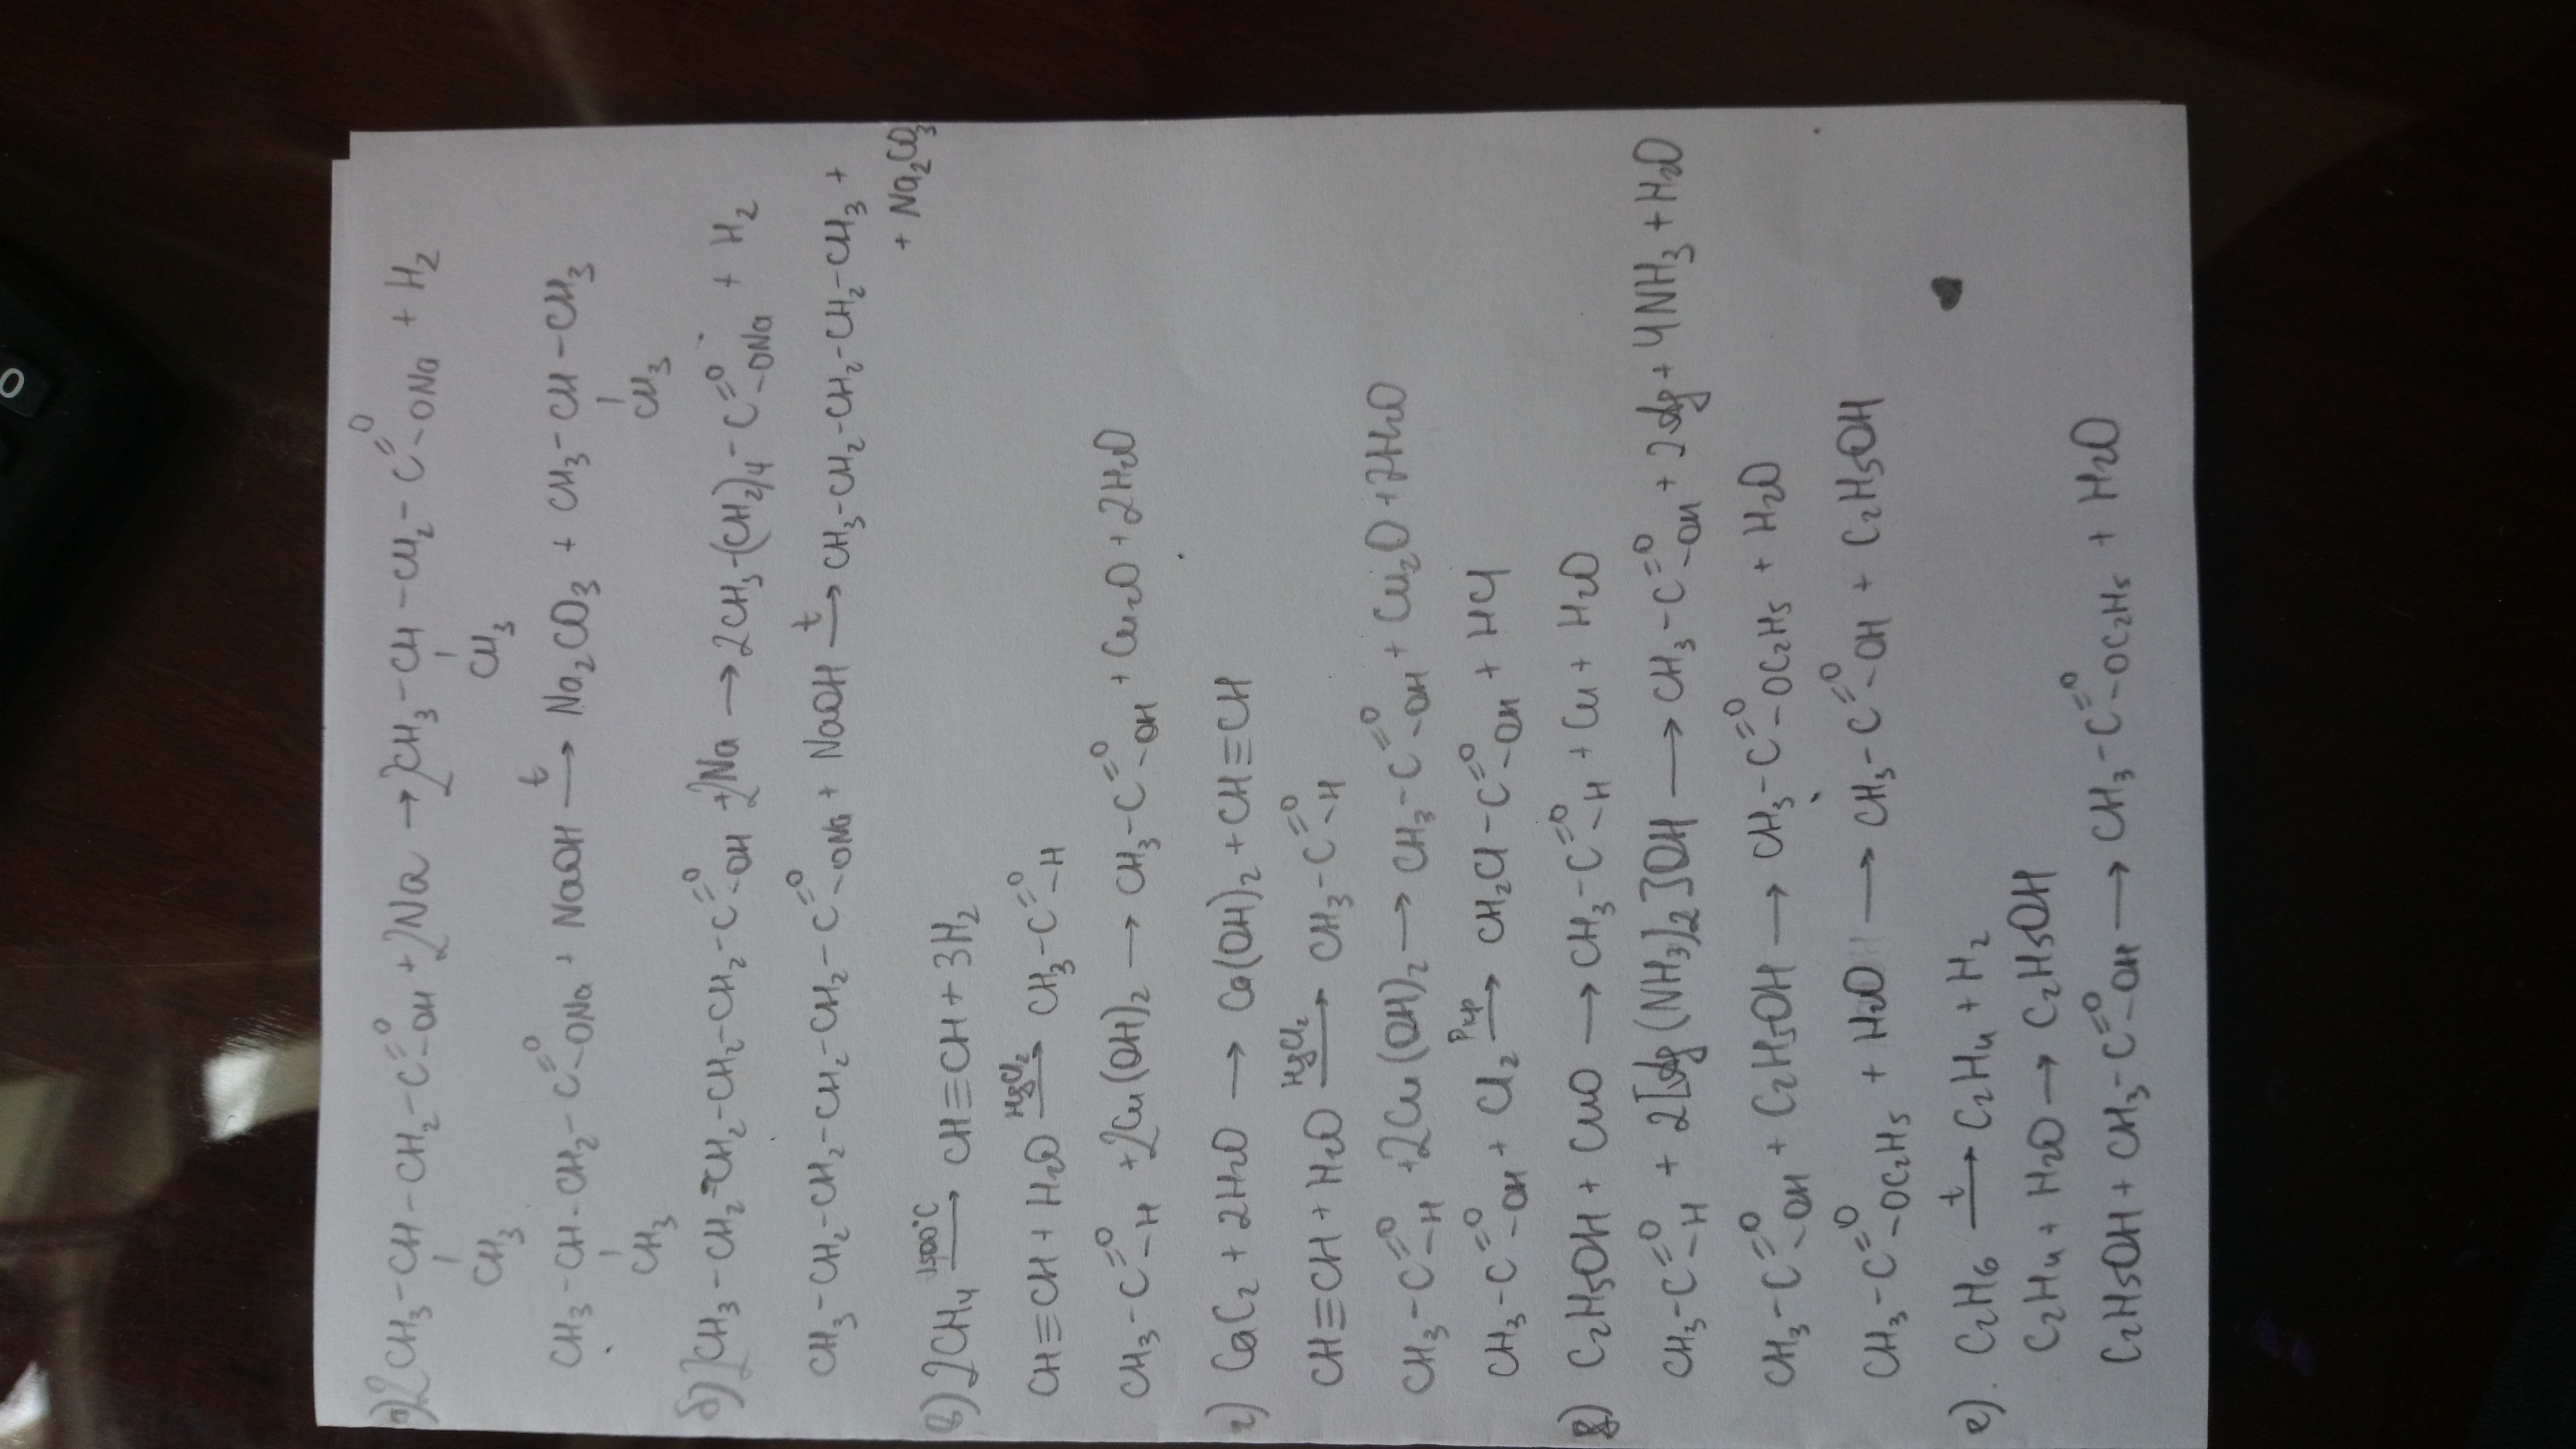 а) 2CH₃-CH-CH₂-C=O-OH + 2Na → 2CH₃-CH-CH₂-C=O-ONa + H₂
CH₃ CH₃
CH₃-CH-CH₂-C=O-ONa + NaOH →t Na₂CO₃ + CH₃-CH-CH₃
CH₃ CH₃
б) 2CH₃-CH₂-CH₂-CH₂-CH₂-C=O-OH + 2Na → 2CH₃-(CH₂)₄-C=O-ONa + H₂
CH₃-CH₂-CH₂-CH₂-CH₂-C=O-ONa + NaOH →t CH₃-CH₂-CH₂-CH₂-CH₃ +
+ Na₂CO₃
в) 2CH₄ →1500°C CH≡CH + 3H₂
CH≡CH + H₂O →HgCl₂ CH₃-C=O-H
CH₃-C=O-H + 2Cu(OH)₂ → CH₃-C=O-OH + Cu₂O + 2H₂O
г) CaC₂ + 2H₂O → Ca(OH)₂ + CH≡CH
CH≡CH + H₂O →HgCl₂ CH₃-C=O-H
CH₃-C=O-H + 2Cu(OH)₂ → CH₃-C=O-OH + Cu₂O + 2H₂O
CH₃-C=O-OH + Cl₂ →Pкр CH₂Cl-C=O-OH + HCl
д) C₂H₅OH + CuO → CH₃-C=O-H + Cu + H₂O
CH₃-C=O-H + 2[Ag(NH₃)₂]OH → CH₃-C=O-OH + 2Ag + 4NH₃ + H₂O
CH₃-C=O-OH + C₂H₅OH → CH₃-C=O-OC₂H₅ + H₂O
CH₃-C=O-OC₂H₅ + H₂O → CH₃-C=O-OH + C₂H₅OH
е). C₂H₆ →t C₂H₄ + H₂
C₂H₄ + H₂O → C₂H₅OH
C₂H₅OH + CH₃-C=O-OH → CH₃-C=O-OC₂H₅ + H₂O